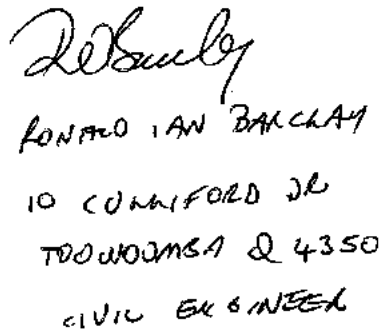 RONALD IAN BARCLAY
10 CUNNIFORD DR
TOOWOOMBA Q 4350
CIVIL ENGINEER